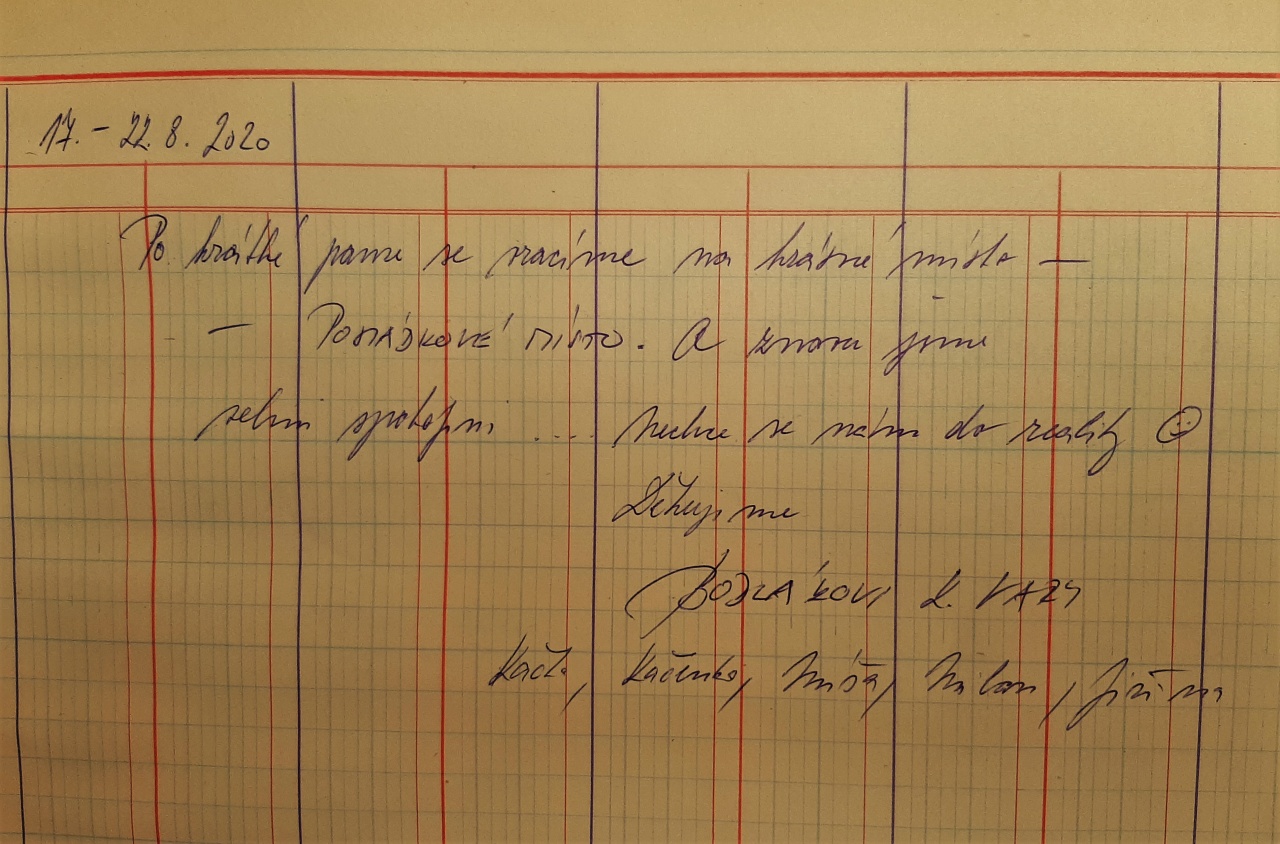 17. - 22. 8. 2020
Po krátké pauze se vracíme na krásné místo —
— POHÁDKOVÉ MÍSTO. A znovu jsme
velmi spokojeni .... Nechce se nám do reality ☺
Děkujeme
Káča, Kačenka, Míša, Milan, Jiřina